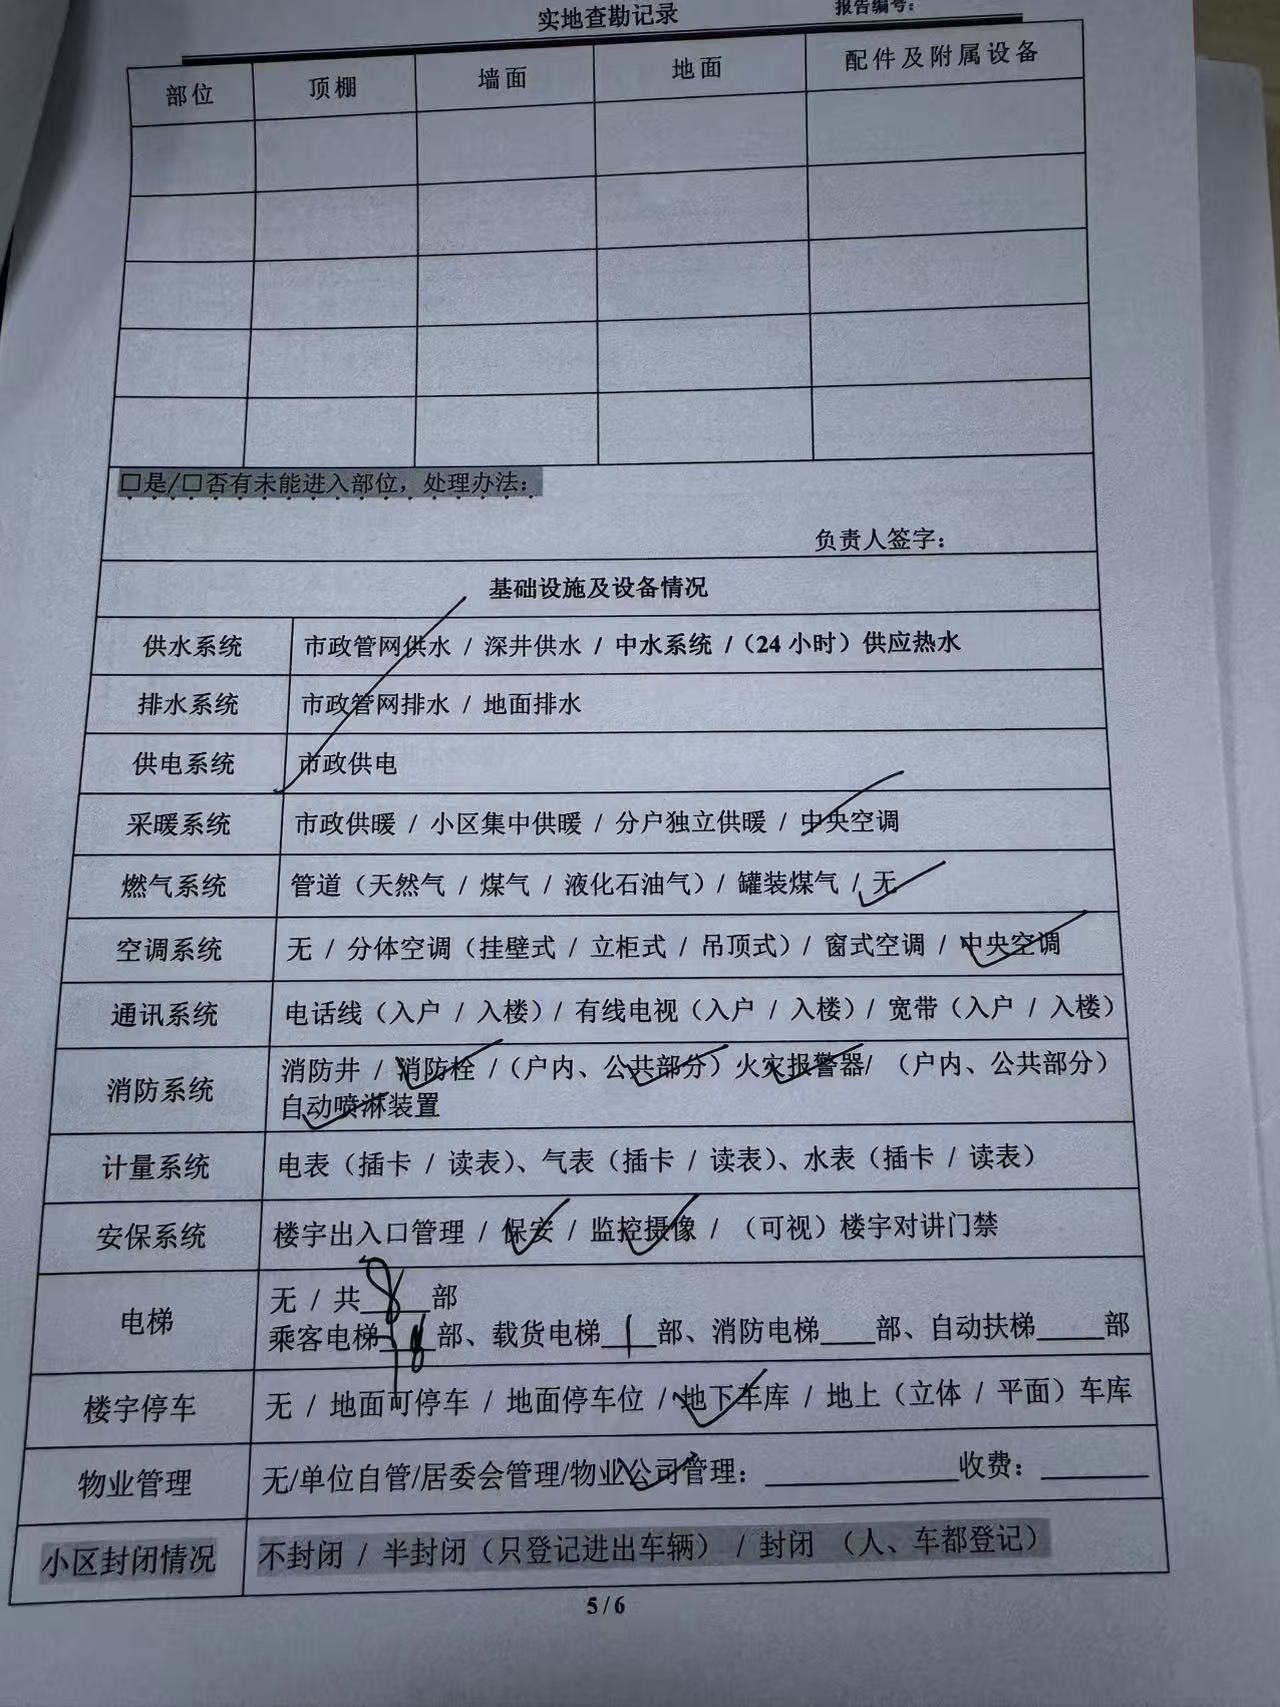 实地查勘记录
报告编号：
部位 顶棚 墙面 地面 配件及附属设备
□是/□否有未能进入部位，处理办法：
负责人签字：
基础设施及设备情况
供水系统 市政管网供水 / 深井供水 / 中水系统 /（24 小时）供应热水
排水系统 市政管网排水 / 地面排水
供电系统 市政供电
采暖系统 市政供暖 / 小区集中供暖 / 分户独立供暖 / 中央空调
燃气系统 管道（天然气 / 煤气 / 液化石油气）/ 罐装煤气 / 无
空调系统 无 / 分体空调（挂壁式 / 立柜式 / 吊顶式）/ 窗式空调 / 中央空调
通讯系统 电话线（入户 / 入楼）/ 有线电视（入户 / 入楼）/ 宽带（入户 / 入楼）
消防系统 消防井 / 消防栓 /（户内、公共部分）火灾报警器/ （户内、公共部分）
自动喷淋装置
计量系统 电表（插卡 / 读表）、气表（插卡 / 读表）、水表（插卡 / 读表）
安保系统 楼宇出入口管理 / 保安 / 监控摄像 / （可视）楼宇对讲门禁
电梯 无 / 共 8 部
乘客电梯____部、载货电梯 1 部、消防电梯____部、自动扶梯_____部
楼宇停车 无 / 地面可停车 / 地面停车位 / 地下车库 / 地上（立体 / 平面）车库
物业管理 无/单位自管/居委会管理/物业公司管理：______________收费：________
小区封闭情况 不封闭 / 半封闭（只登记进出车辆） / 封闭 （人、车都登记）
5 / 6